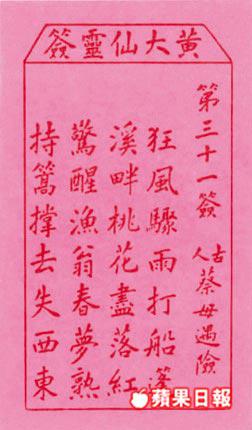 黃大仙靈簽
第三十一簽
古人 蔡母遇險
狂風驟雨打船篷
溪畔桃花盡落紅
驚醒漁翁春夢熟
持篙撐去失西東
蘋果日報